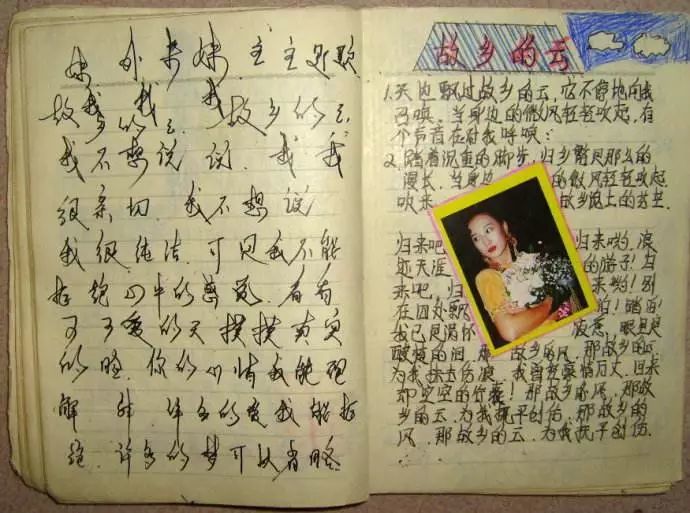 妹 外来妹 主主题歌
故我 我 我 故乡的云
我不想说 说. 我 我
很亲切. 我不想说
我很纯洁. 可是我不能
拒绝心中的感觉. 看看
可可爱的天摸摸真实
的脸. 你的心情我能理
解 的爱我能拒
绝. 许多的梦可以省略
故乡的云
1.天边飘过故乡的云,它不停地向我
召唤,当身边的微风轻轻吹起,有
个声音在对我呼唤:
2.踏着沉重的脚步,归乡路是那么的
漫长,当身边 的微风轻轻吹起
吹来 故乡泥土的芬芳
归来吧 归来哟,浪
迹天涯 的游子!归
来吧,归 来哟!别
在四处飘 泊!
我已是满怀 疲惫,眼里是
酸楚的泪,那 故乡的风,那故乡的云
为我抹去伤痕,我曾豪情万丈,归来
却空空的行囊!那故乡的风,那故
乡的云,为我抚平创伤,那故乡的
风,那故乡的云,为我抚平创伤.